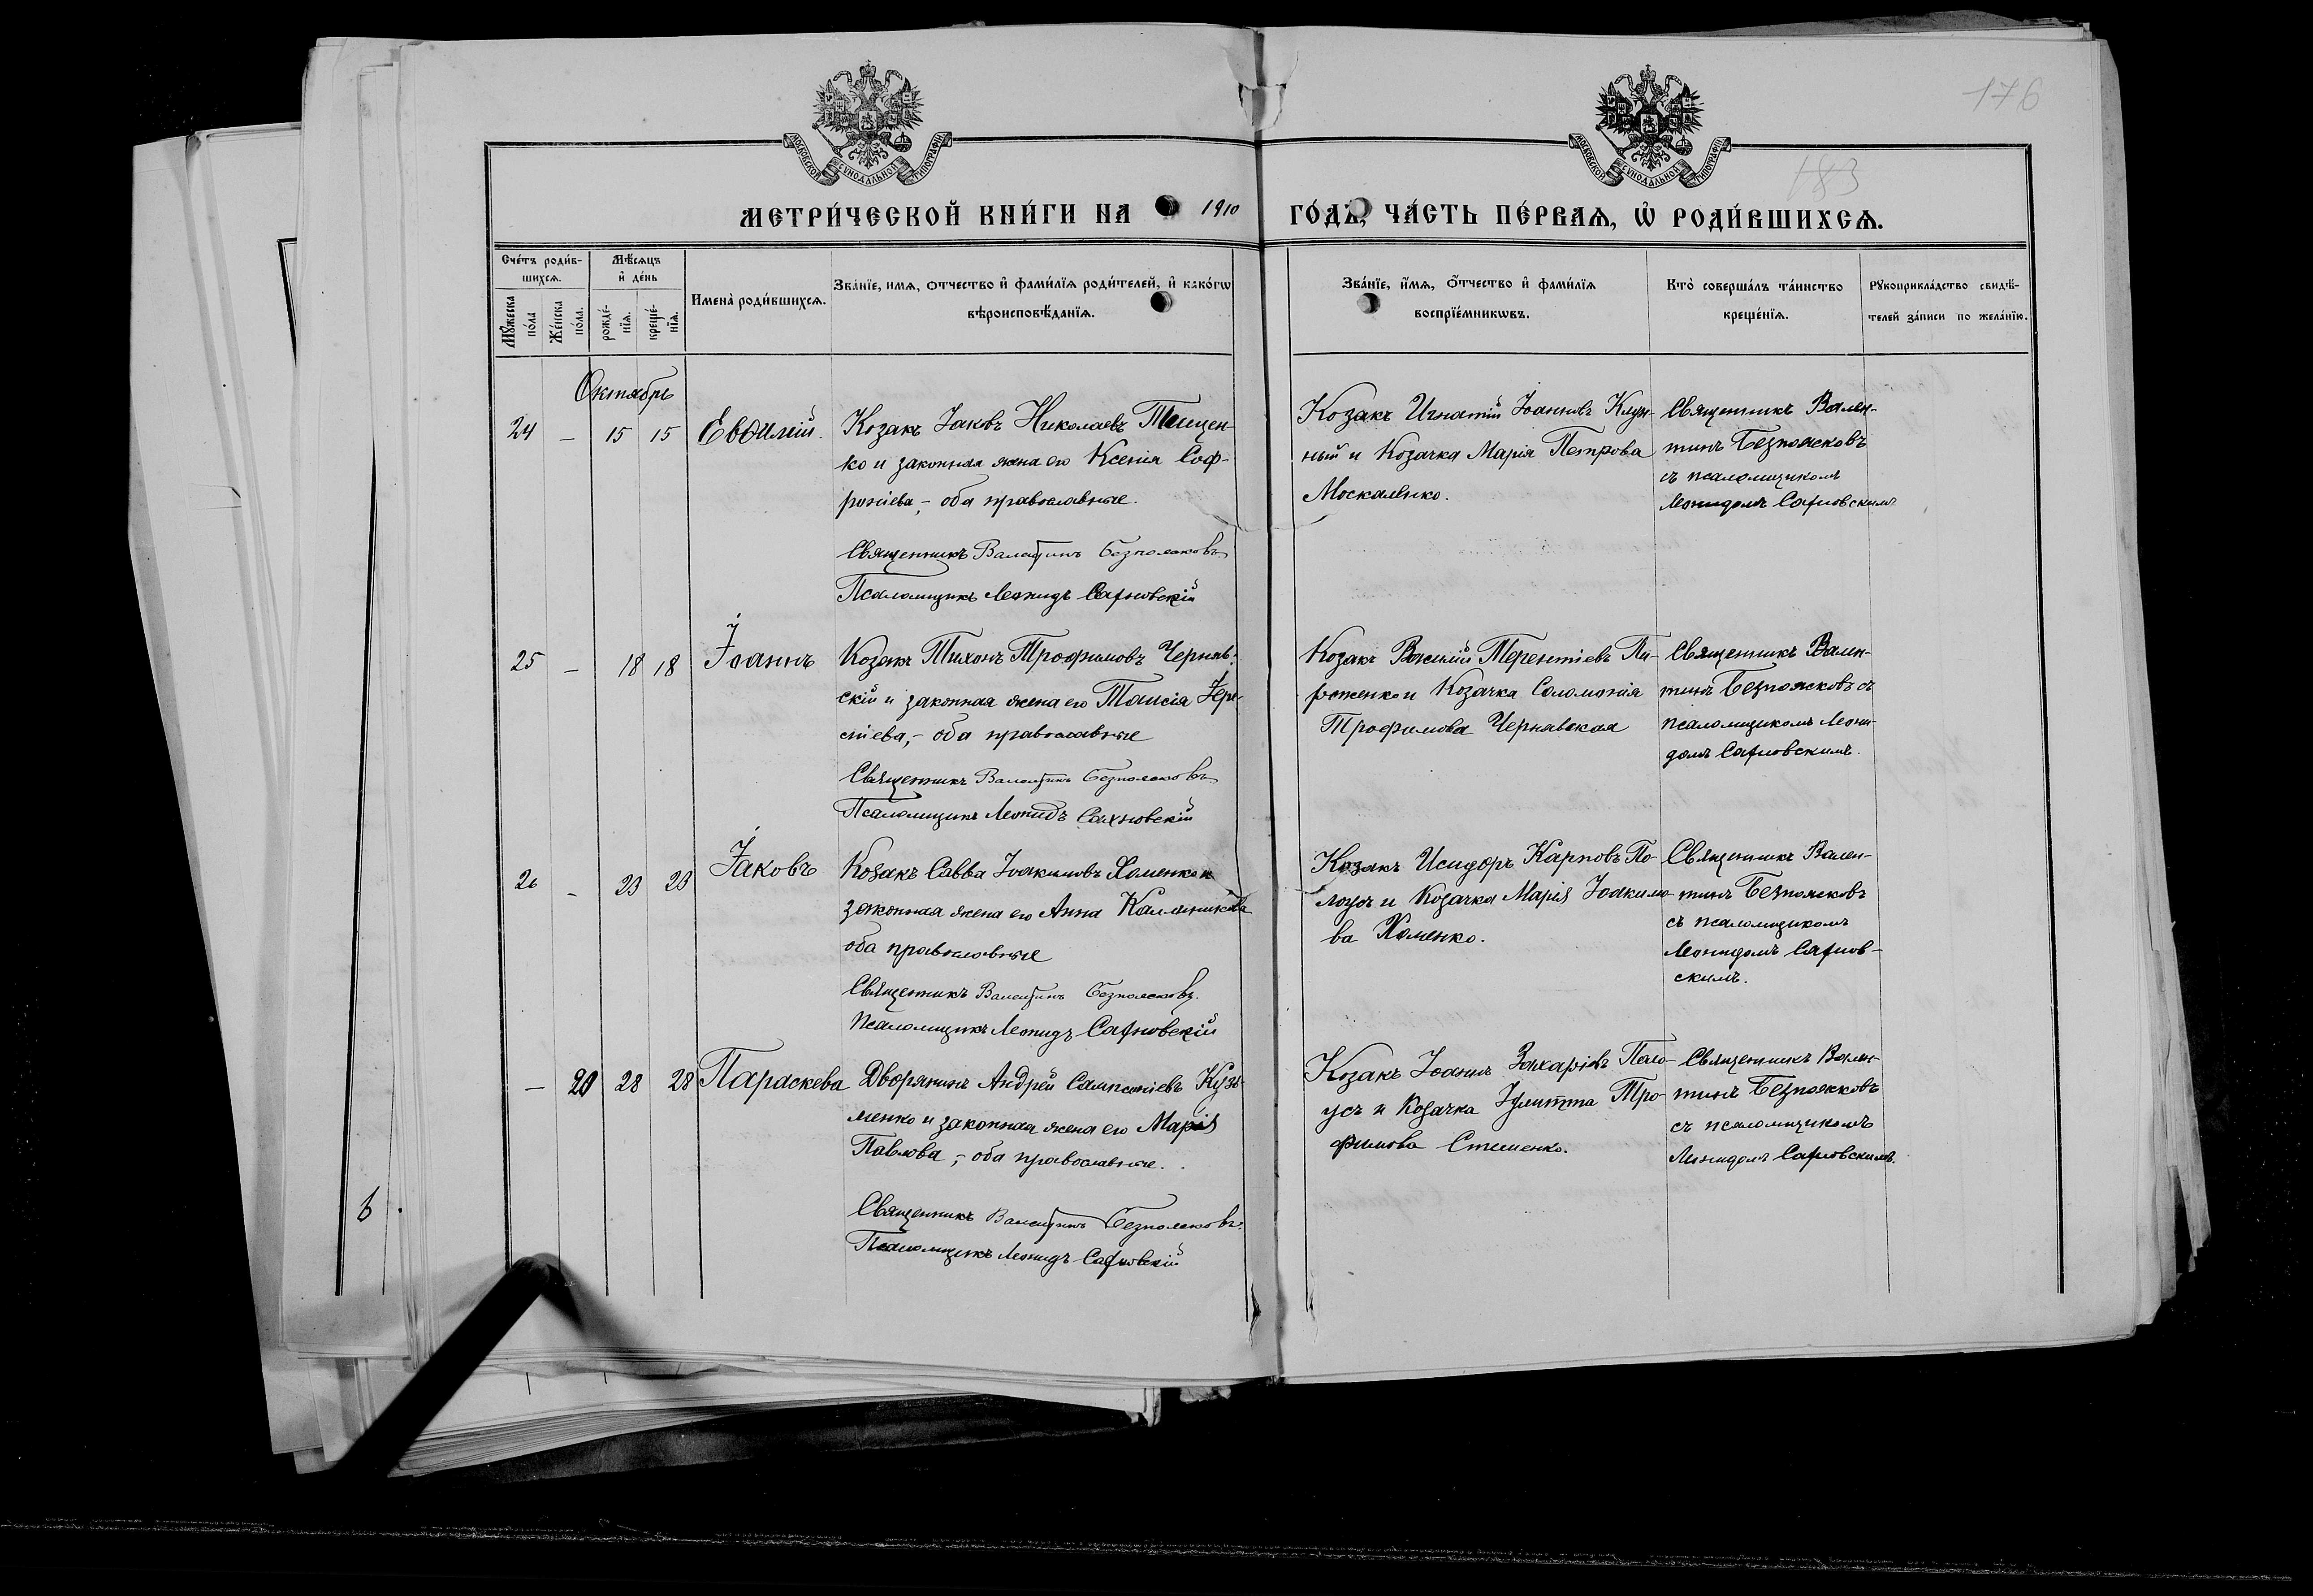 176
183
МОСКОВСКОЙ СѴНОДАЛЬНОЙ ТИПОГРАФІИ
МОСКОВСКОЙ СѴНОДАЛЬНОЙ ТИПОГРАФІИ
МЕТРИ́ЧЕСКОЙ КНИ́ГИ НА 1910 ГО́ДЪ, ЧА́СТЬ ПЕ́РВАѦ, Ѡ҆ РОДИ́ВШИХСѦ.
Сче́тъ роди́в-
шихсѧ.
Мꙋ́жеска по́ла
Же́нска по́ла.
Мѣ́сѧцъ
и҆ де́нь
рожде́-
нїѧ.
креще́-
нїѧ.
Имена̀ роди́вшихсѧ.
Зва́нїе, имѧ, ѻтчество и҆ фами́лїѧ роди́телей, и҆ како́гѡ
вѣроисповѣ́данїѧ.
Зва́нїе, и҆́мѧ, ѻ҆́тчество и҆ фами́лїѧ
воспрїе́мникѡвъ.
Кто̀ соверша́лъ та́инство
креще́нїѧ.
Рꙋкоприкла́дство свидѣ́-
телей за́писи по жела́нїю.
Октябрь
24 — 15 15 Евѳимій. Козакъ Іаковъ Николаевъ Тищен-
ко и законная жена его Ксенія Соф-
роніева, - оба православные.
Священникъ Валентинъ Безпоясковъ
Псаломщикъ Леонидъ Сахновскій
Козакъ Игнатій Іоанновъ
ный и Козачка Марія Петрова
Москаленко.
Священникъ Вален-
тинъ Безпоясковъ
съ псаломщикомъ
Леонидомъ Сахновскимъ
25 — 18 18 Іоаннъ Козакъ Тихонъ Трофимовъ Черняв-
скій и законная жена его Таисія
оба православные
Священникъ Валентинъ Безпоясковъ
Псаломщикъ Леонидъ Сахновскій
Козакъ Василій Терентіевъ Па-
роженко и Козачка Соломонія
Трофимова Чернявская
Священникъ Вален-
тинъ Безпоясковъ съ
псаломщикомъ Леони-
домъ Сахновскимъ.
26 — 23 23 Іаковъ Козакъ Савва Іоакимовъ Хоменко и
законная жена его Анна Калинникова
оба православные
Священникъ Валентинъ Безпоясковъ.
Псаломщикъ Леонидъ Сахновскій
Козакъ Исидоръ Карповъ По-
лоусъ и Козачка Марія Іоакимо-
ва Хоменко.
Священникъ Вален-
тинъ Безпоясковъ
съ псаломщикомъ
Леонидомъ Сахнов-
скимъ.
— 20 28 28 Параскева Дворянинъ Андрей Сампсоніевъ Кузь-
менко и законная жена его Марія
Павлова, - оба православные.
Священникъ Валентинъ Безпоясковъ.
Псаломщикъ Леонидъ Сахновскій
Козакъ Іоаннъ Захаріевъ Поло-
усъ и Козачка Іулитта Тро-
фимова Стеценко.
Священникъ Вален-
тинъ Безпоясковъ
съ псаломщикомъ
Леонидомъ Сахновскимъ.